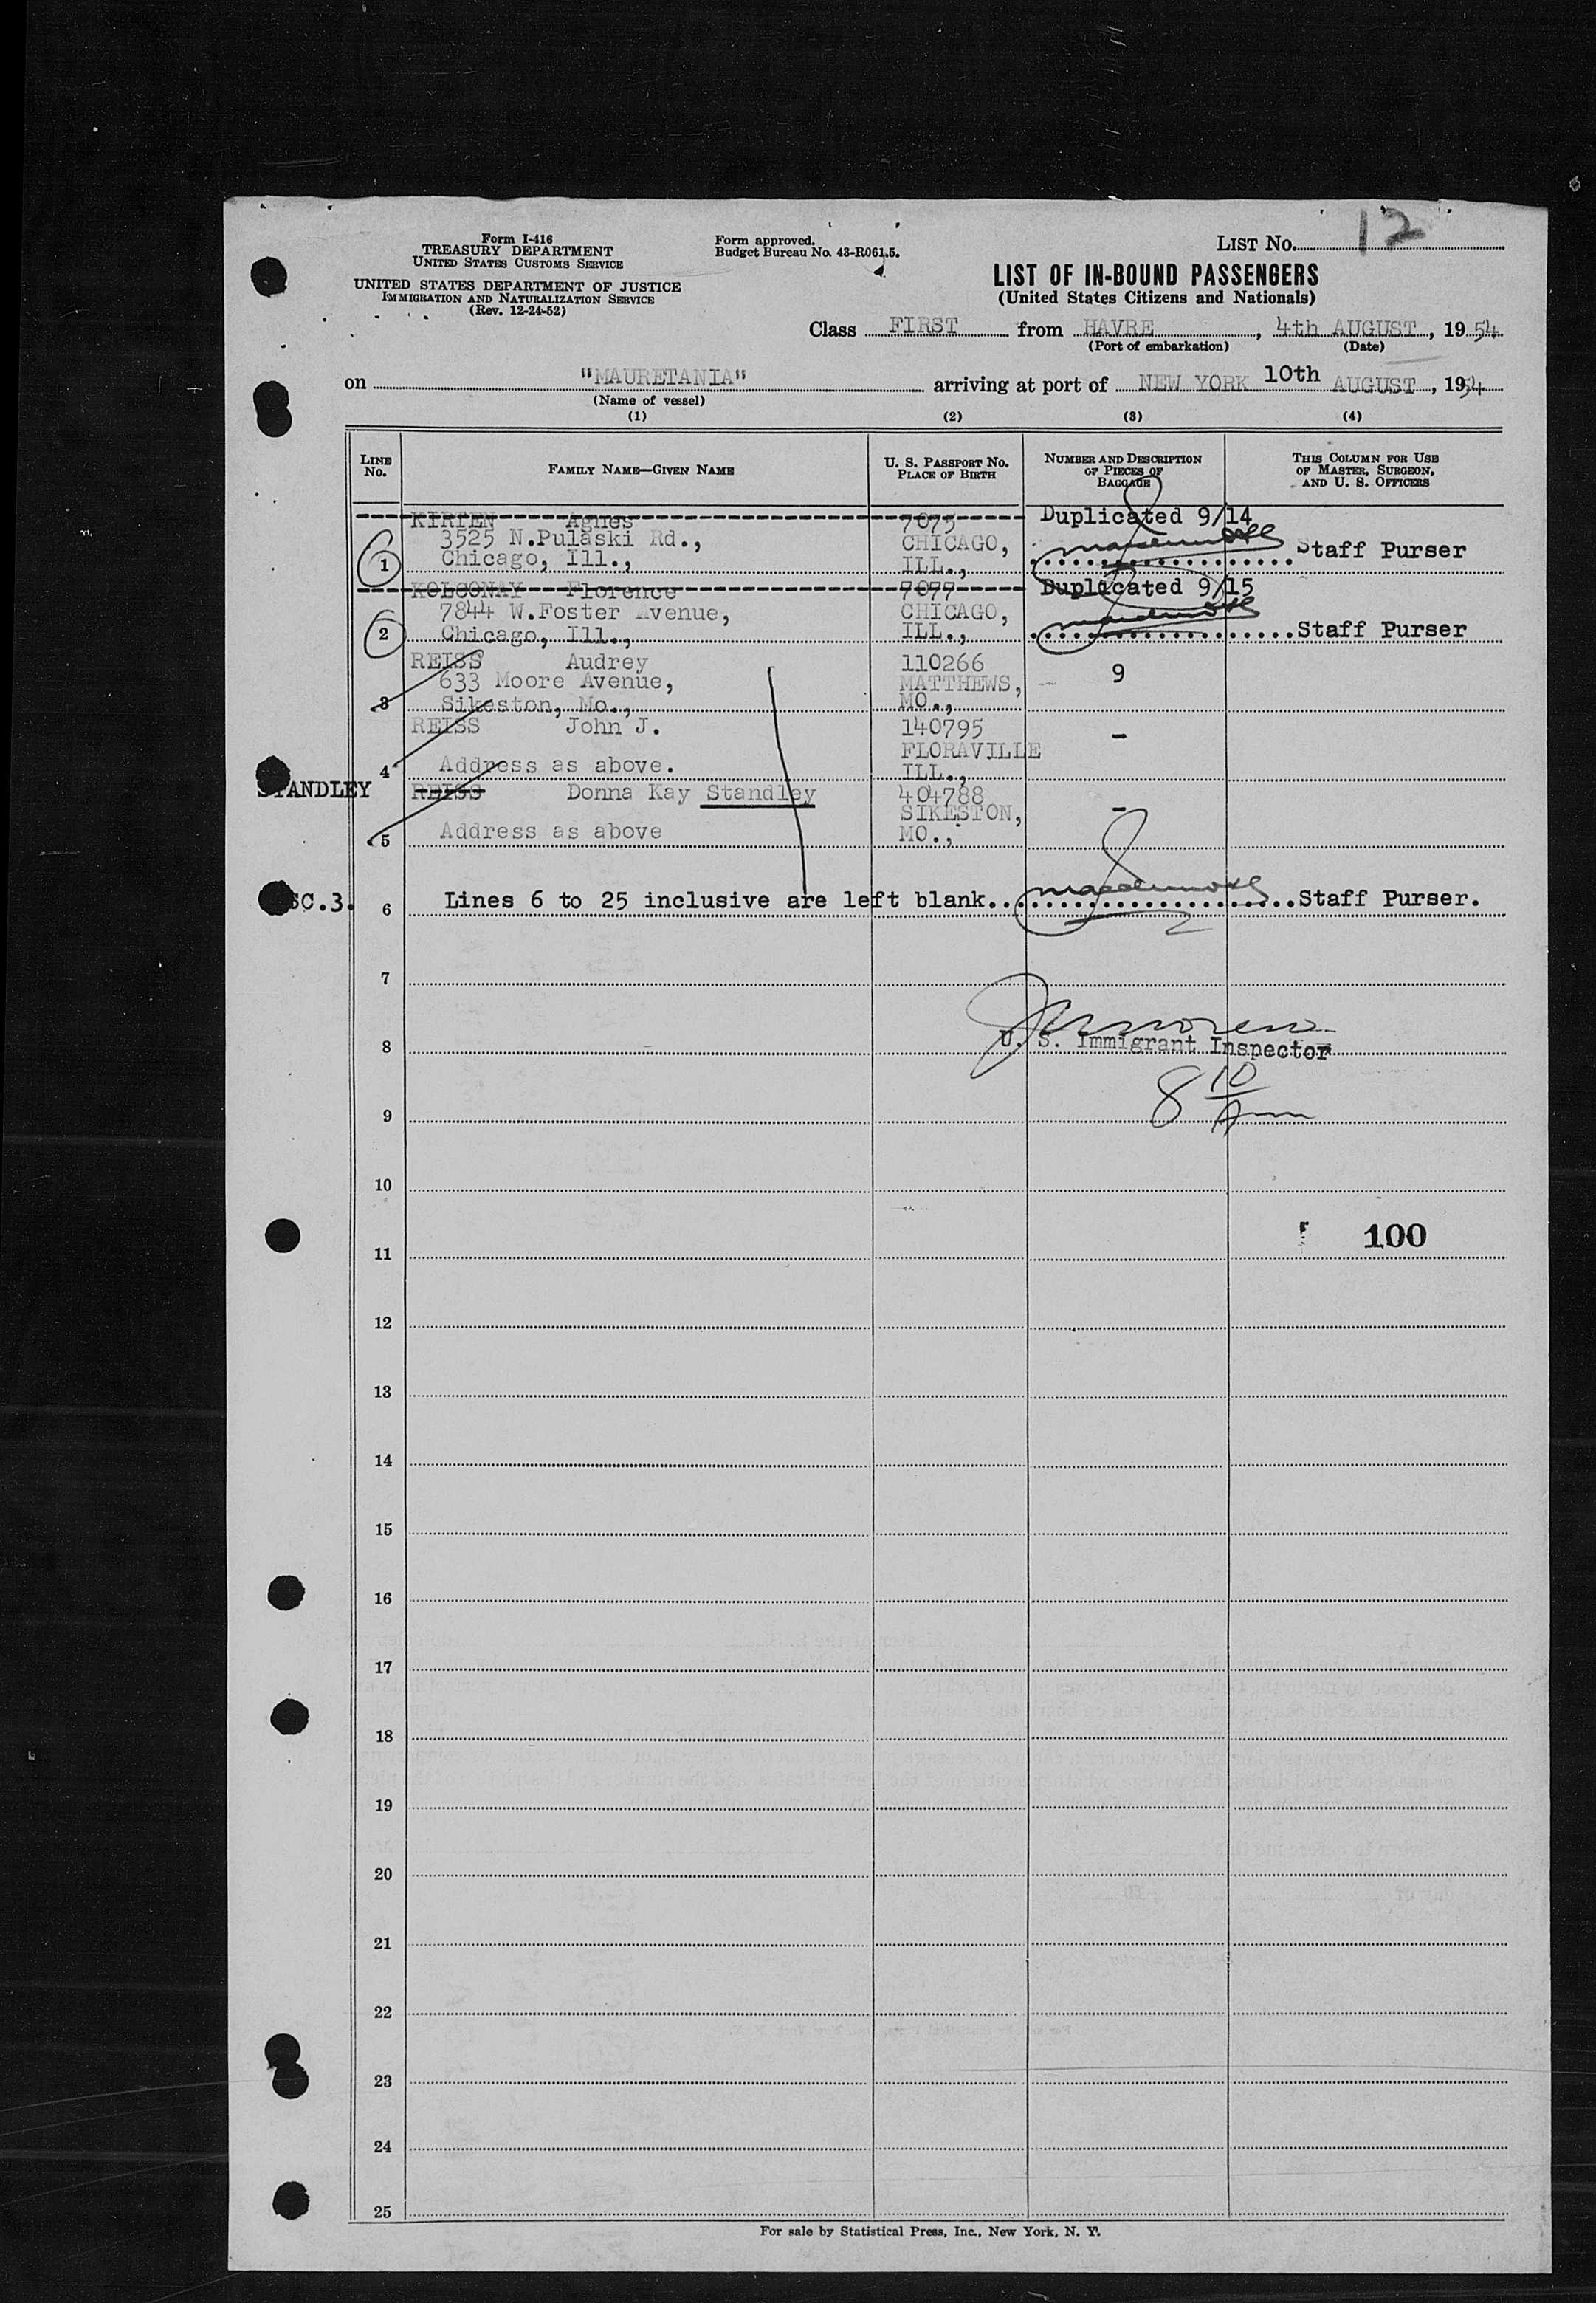 Form I-416
TREASURY DEPARTMENT
UNITED STATES CUSTOMS SERVICE
UNITED STATES DEPARTMENT OF JUSTICE
IMMIGRATION AND NATURALIZATION SERVICE
(Rev. 12-24-52)
Form approved.
Budget Bureau No. 43-R061.5.
LIST No. 12
LIST OF IN-BOUND PASSENGERS
(United States Citizens and Nationals)
Class FIRST from HAVRE, 4th AUGUST, 1954
(Port of embarkation) (Date)
on "MAURETANIA" arriving at port of NEW YORK 10th AUGUST, 1954
(Name of vessel)
(1) (2) (3) (4)
LINE No. FAMILY NAME—GIVEN NAME U. S. PASSPORT NO. PLACE OF BIRTH NUMBER AND DESCRIPTION OF PIECES OF BAGGAGE THIS COLUMN FOR USE OF MASTER, SURGEON, AND U. S. OFFICERS
KIRTEN Agnes 7075 Duplicated 9/14
3525 N.Pulaski Rd., CHICAGO, Staff Purser
1 Chicago, Ill., ILL.,
KOLCONAY Florence 7077 Duplicated 9/15
7844 W.Foster Avenue, CHICAGO,
2 Chicago, Ill., ILL., Staff Purser
REISS Audrey 110266 9
633 Moore Avenue, MATTHEWS,
3 Sikeston, Mo., MO.,
REISS John J. 140795 -
FLORAVILLE
4 Address as above. ILL.,
STANDLEY REISS Donna Kay Standley 404788 -
SIKESTON,
5 Address as above MO.,
SC.3. 6 Lines 6 to 25 inclusive are left blank. Staff Purser.
7
8 U. S. Immigrant Inspector
9 8 10 Am
10
100
11
12
13
14
15
16
17
18
19
20
21
22
23
24
25
For sale by Statistical Press, Inc., New York, N. Y.